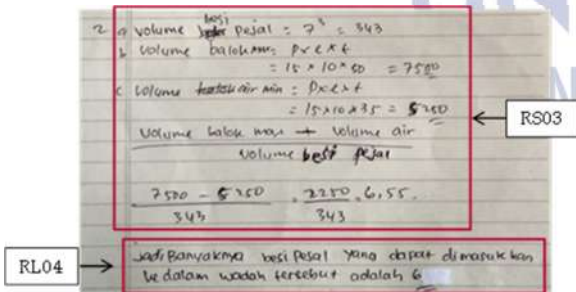 2 a volume besi pejal = 7³ = 343
b volume balok max = p x l x t
= 15 x 10 x 50 = 7500
c volume air min = p x l x t
= 15 x 10 x 35 = 5250
volume balok max + volume air
volume besi pejal
7500 - 5250 = 2250 = 6,55..
343 343
RS03
Jadi Banyaknya besi Pejal yang dapat dimasukkan
ke dalam wadah tersebut adalah 6
RL04